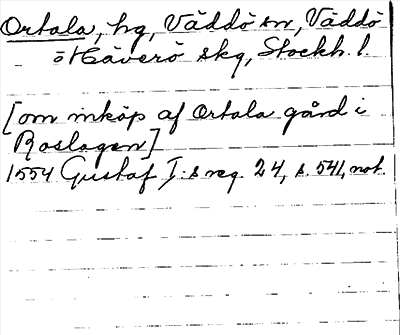 Ortala, hg, Väddö sn, Väddö
o Häverö skg, Stockh. l.
[om inköp af Ortala gård i
Roslagen]
1554 Gustaf I:s reg. 24, s. 541, not.